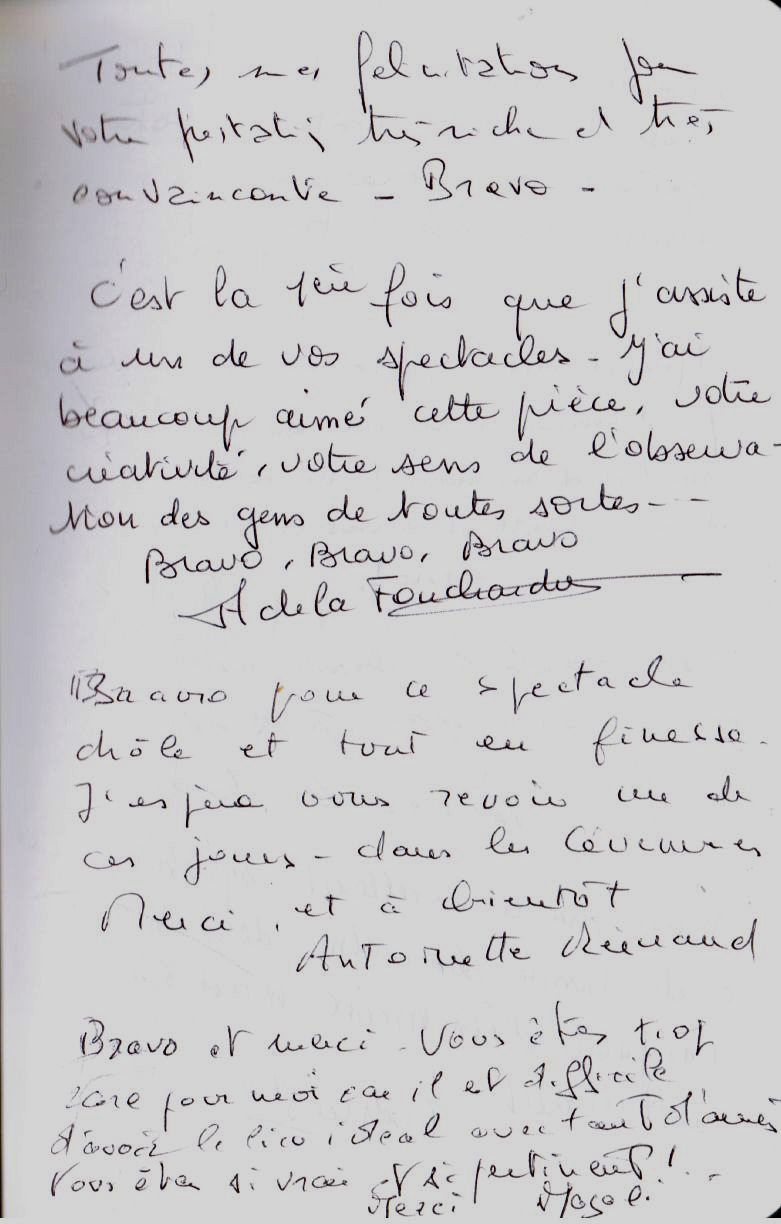 Toutes mes felicitations pour
votre prestation très riche et très
convaincante - Bravo -
C'est la 1ère fois que j'assiste
à un de vos spectacles - J'ai
beaucoup aimé cette pièce, votre
créativité, votre sens de l'observa-
tion des gens de toutes sortes---
Bravo, Bravo, Bravo
A de la Fouchardière
Bravo pour ce spectacle
drôle et tout en finesse.
J'espère vous revoir un de
ces jours - dans les Cévennes
Merci, et à bientôt
Antoinette
Bravo et merci. Vous êtes trop
rare pour moi car il est difficile
d'avoir le lien ideal avec tant d'années
Vous êtes si vrai et si pertinent! -
Merci